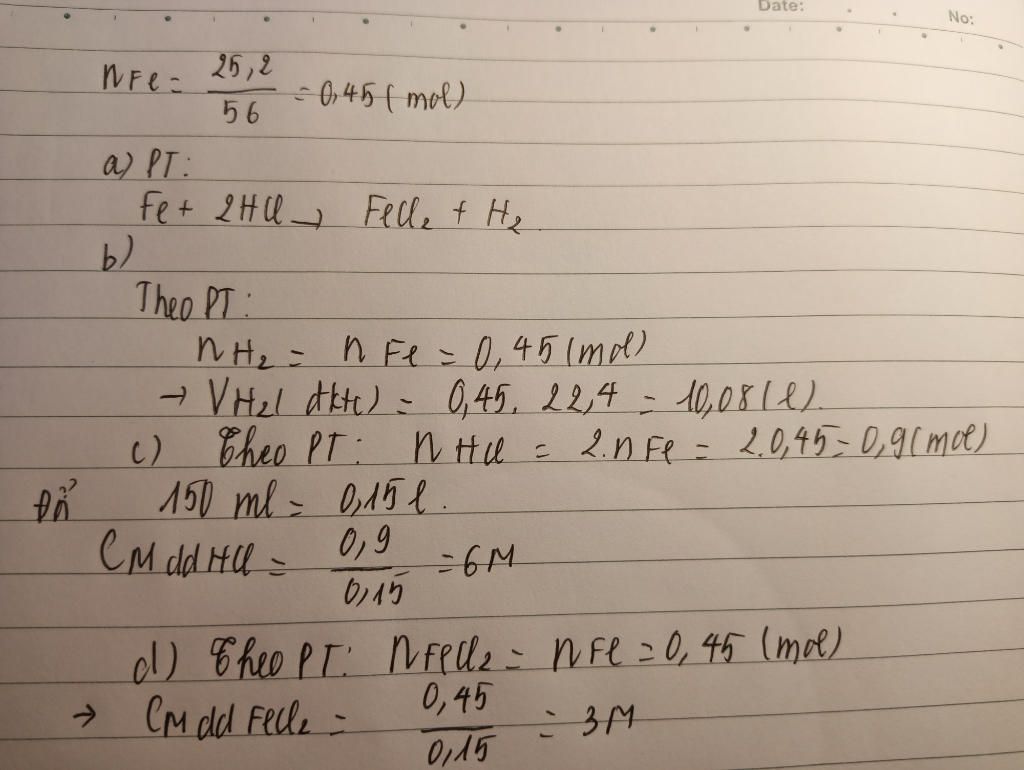 Date:
No:
nFe = 25,2/56 = 0,45 (mol)
a) PT:
Fe + 2HCl → FeCl₂ + H₂
b)
Theo PT:
nH₂ = nFe = 0,45 (mol)
→ VH₂( đktc) = 0,45. 22,4 = 10,08 (l).
c) Theo PT: nHCl = 2.nFe = 2.0,45 = 0,9 (mol)
Đổi 150 ml = 0,15 l.
CM dd HCl = 0,9/0,15 = 6M
d) Theo PT: nFeCl₂ = nFe = 0,45 (mol)
→ CM dd FeCl₂ = 0,45/0,15 = 3M